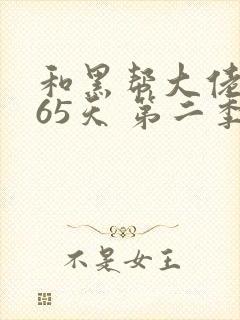 和黑帮大佬
65天 第二季
不是女王